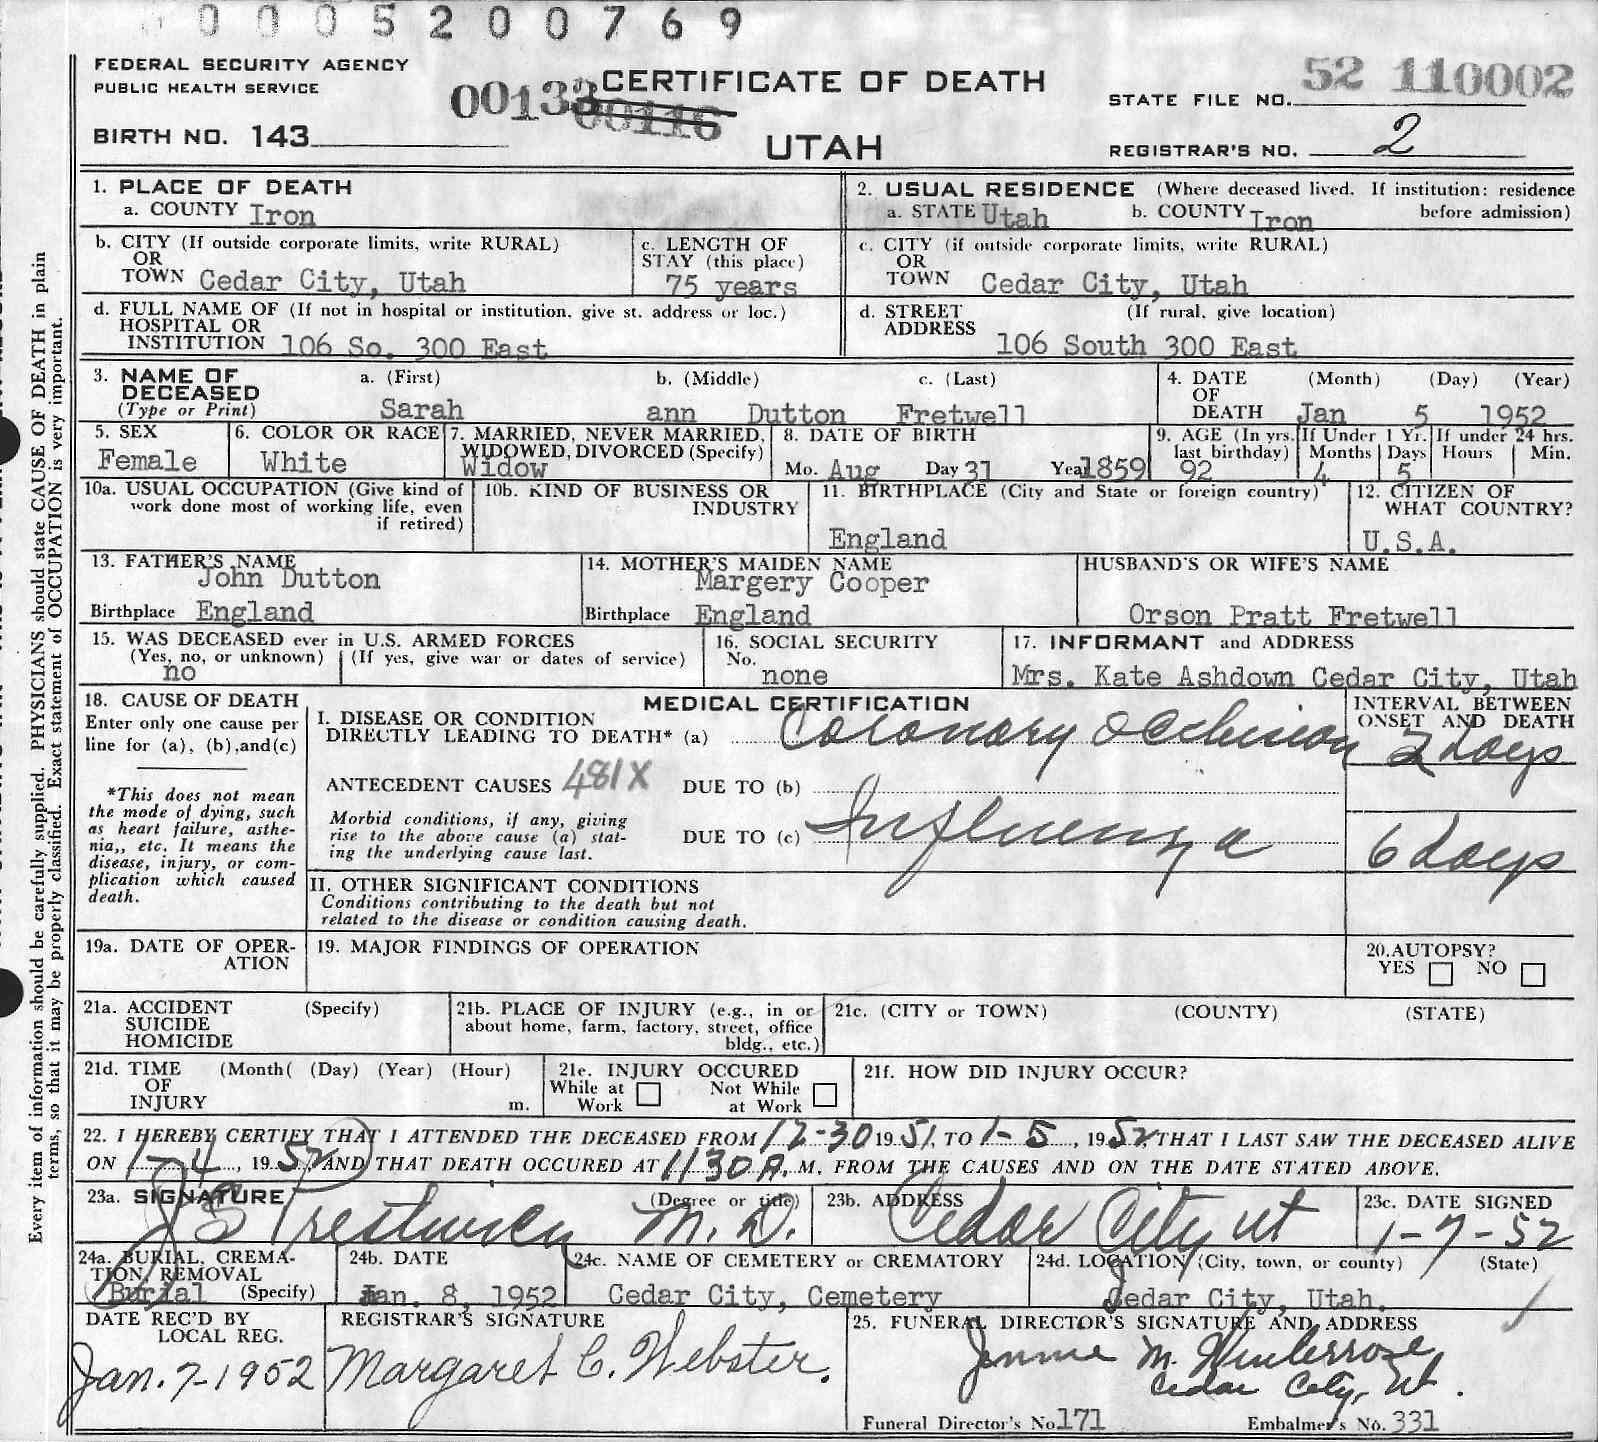 0 0 0 5 2 0 0 7 6 9
FEDERAL SECURITY AGENCY
PUBLIC HEALTH SERVICE
00133
00116
CERTIFICATE OF DEATH
UTAH
BIRTH NO. 143
STATE FILE NO. 52 110002
REGISTRAR'S NO. 2
Every item of information should be carefully supplied. PHYSICIANS should state CAUSE OF DEATH in plain
terms, so that it may be properly classified. Exact statement of OCCUPATION is very important.
1. PLACE OF DEATH
a. COUNTY Iron
2. USUAL RESIDENCE (Where deceased lived. If institution: residence
a. STATE Utah b. COUNTY Iron before admission)
b. CITY (If outside corporate limits, write RURAL)
OR
TOWN Cedar City, Utah
c. LENGTH OF
STAY (this place)
75 years
c. CITY (if outside corporate limits, write RURAL)
OR
TOWN Cedar City, Utah
d. FULL NAME OF (If not in hospital or institution, give st. address or loc.)
HOSPITAL OR
INSTITUTION 106 So. 300 East
d. STREET (If rural, give location)
ADDRESS
106 South 300 East
3. NAME OF a. (First) b. (Middle) c. (Last)
DECEASED
(Type or Print) Sarah ann Dutton Fretwell
4. DATE (Month) (Day) (Year)
OF
DEATH Jan 5 1952
5. SEX
Female
6. COLOR OR RACE
White
7. MARRIED, NEVER MARRIED,
WIDOWED, DIVORCED (Specify)
Widow
8. DATE OF BIRTH
Mo. Aug Day 31 Year 1859
9. AGE (In yrs.
last birthday)
92
If Under 1 Yr.
Months Days
4 5
If under 24 hrs.
Hours Min.
10a. USUAL OCCUPATION (Give kind of
work done most of working life, even
if retired)
10b. KIND OF BUSINESS OR
INDUSTRY
11. BIRTHPLACE (City and State or foreign country)
England
12. CITIZEN OF
WHAT COUNTRY?
U.S.A.
13. FATHER'S NAME
John Dutton
Birthplace England
14. MOTHER'S MAIDEN NAME
Margery Cooper
Birthplace England
HUSBAND'S OR WIFE'S NAME
Orson Pratt Fretwell
15. WAS DECEASED ever in U.S. ARMED FORCES
(Yes, no, or unknown) (If yes, give war or dates of service)
no
16. SOCIAL SECURITY
No.
none
17. INFORMANT and ADDRESS
Mrs. Kate Ashdown Cedar City, Utah
18. CAUSE OF DEATH
Enter only one cause per
line for (a), (b),and(c)
*This does not mean
the mode of dying, such
as heart failure, asthe-
nia,, etc. It means the
disease, injury, or com-
plication which caused
death.
MEDICAL CERTIFICATION
I. DISEASE OR CONDITION
DIRECTLY LEADING TO DEATH* (a) Coronary Occlusion
INTERVAL BETWEEN
ONSET AND DEATH
2 days
ANTECEDENT CAUSES 481X DUE TO (b)
Morbid conditions, if any, giving
rise to the above cause (a) stat-
ing the underlying cause last.
DUE TO (c) Influenza
6 days
II. OTHER SIGNIFICANT CONDITIONS
Conditions contributing to the death but not
related to the disease or condition causing death.
19a. DATE OF OPER-
ATION
19. MAJOR FINDINGS OF OPERATION
20.AUTOPSY?
YES NO
21a. ACCIDENT (Specify)
SUICIDE
HOMICIDE
21b. PLACE OF INJURY (e.g., in or
about home, farm, factory, street, office
bldg., etc.)
21c. (CITY or TOWN) (COUNTY) (STATE)
21d. TIME (Month( (Day) (Year) (Hour)
OF
INJURY m.
21e. INJURY OCCURED
While at Not While
Work at Work
21f. HOW DID INJURY OCCUR?
22. I HEREBY CERTIFY THAT I ATTENDED THE DECEASED FROM 12-30 1951, TO 1-5, 1952, THAT I LAST SAW THE DECEASED ALIVE
ON 1-4, 1952 AND THAT DEATH OCCURED AT 1130 A. M. FROM THE CAUSES AND ON THE DATE STATED ABOVE.
23a. SIGNATURE (Degree or title)
M.D.
23b. ADDRESS
Cedar City Ut
23c. DATE SIGNED
1-7-52
24a. BURIAL, CREMA-
TION, REMOVAL
Burial (Specify)
24b. DATE
Jan. 8, 1952
24c. NAME OF CEMETERY OR CREMATORY
Cedar City, Cemetery
24d. LOCATION (City, town, or county) (State)
Cedar City, Utah.
DATE REC'D BY
LOCAL REG.
Jan. 7-1952
REGISTRAR'S SIGNATURE
Margaret C. Webster.
25. FUNERAL DIRECTOR'S SIGNATURE AND ADDRESS
M.
Cedar City, Ut.
Funeral Director's No. 171 Embalmer's No. 331